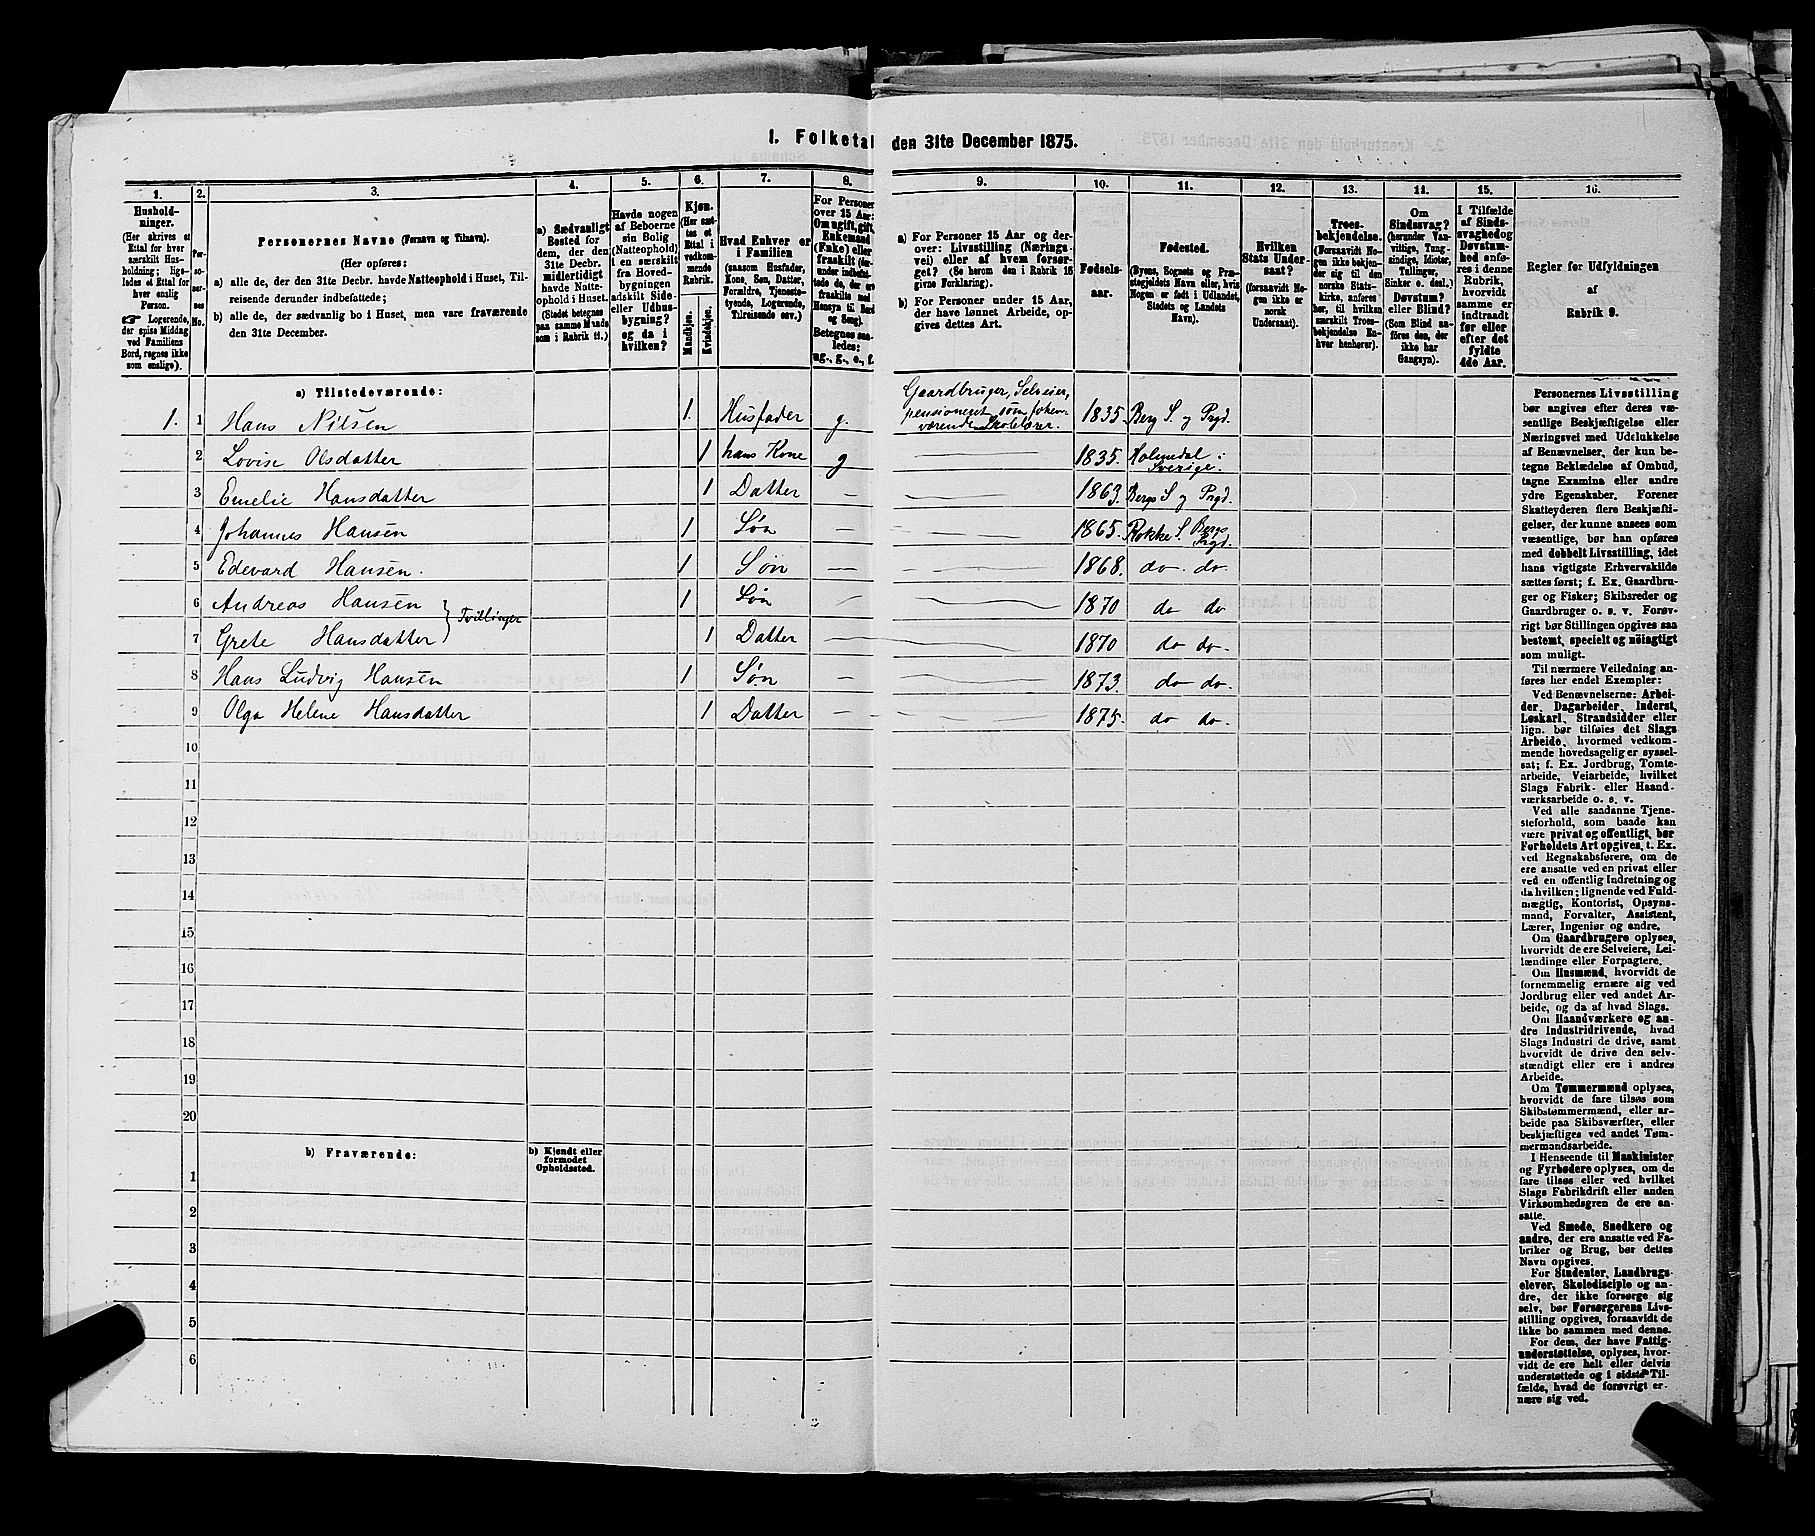 1. Folketal den 31te December 1875.
1. 2. 3. 4. 5. 6. 7. 8. 9. 10. 11. 12. 13. 14. 15. 16.
Hushold-
ninger.
(Her skrives et
Ettal for hver
særskilt Hus-
holdning; lige-
ledes et Ettal for
hver enslig
Person.
☞ Logerende,
der spise Middag
ved Familiens
Bord, regnes ikke
som enslige).
Per-
so-
ner-
nes
No.
Personernes Navne (Fornavn og Tilnavn).
(Her opføres:
a) alle de, der den 31te Decbr. havde Natteophold i Huset, Til-
reisende derunder indbefattede;
b) alle de, der sædvanlig bo i Huset, men vare fraværende
den 31te December.
a) Sædvanligt
Bosted for
dem, der den
31te Decbr.
midlertidigt
havde Natte-
ophold i Huset.
(Stedet betegnes
paa samme Maade
som i Rubrik 11.)
Havde nogen
af Beboerne
sin Bolig
(Natteophold)
i en særskilt
fra Hoved-
bygningen
adskilt Side-
eller Udhus-
bygning?
og da i
hvilken?
Kjøn.
(Her sæt-
tes et
Ettal i
vedkom-
mende
Rubrik.
Mandkjøn.
Kvindekjøn.
Hvad Enhver er
i Familien
(saasom Husfader,
Kone, Søn, Datter,
Forældre, Tjeneste-
tyende, Logerende,
Tilreisende osv.)
For Personer
over 15 Aar:
Om ugift, gift,
Enkemand
(Enke) eller
fraskilt
Betegnes saa-
ledes:
ug., g., e., f.
a) For Personer 15 Aar og der-
over: Livsstilling (Nærings-
vei) eller af hvem forsør-
get? (Se herom den i Rubrik 16
givne Forklaring).
b) For Personer under 15 Aar,
der have lønnet Arbeide, op-
gives dettes Art.
Fødsels-
aar.
Fødested.
(Byens, Sognets og Præ-
stegjeldets Navn eller, hvis
Nogen er født i Udlandet,
Stedets og Landets
Navn).
Hvilken
Stats Under-
saat?
(forsaavidt No-
gen ikke er
norsk
Undersaat).
Troes-
bekjendelse.
(Forsaavidt No-
gen ikke bekjen-
der sig til den
norske Stats-
kirke, anføres
her, til hvilken
særskilt Troes-
bekjendelse En-
hver henhører).
Om
Sindssvag?
(herunder Van-
vittige, Tung-
sindige, Idioter,
Tullinger,
Sinker o. desl.)
Døvstum?
eller Blind?
(Som Blind an-
føres den, der
ikke har
Gangsyn).
I Tilfælde
af Sinds-
svaghed og
Døvstum-
hed anfø-
res i denne
Rubrik,
hvorvidt
samme er
indtraadt
før eller
efter det
fyldte
4de Aar.
Regler for Udfyldningen
af
Rubrik 9.
a) Tilstedeværende:
1. 1 Hans Nilsen 1. Husfader g. Gaardbruger, Selveier, pensioneret som forhen-værende Skolelærer. 1835. Berg S. og Prgd.
2 Lovise Olsdatter 1 hans Kone g 1835. Holmedal i Sverige.
3 Emelie Hansdatter 1 Datter — 1863. Bergs S og Prgd.
4 Johannes Hansen 1 Søn — 1865. Rokke S. Bergs Prgd.
5 Edevard Hansen. 1 Søn — 1868. do. do.
6 Andreas Hansen 1 Søn — 1870 do do
Tvillinger
7 Grete Hansdatter 1 Datter — 1870 do do.
8 Hans Ludvig Hansen 1 Søn — 1873. do do.
9 Olga Helene Hansdatter 1 Datter — 1875. do do.
10
11
12
13
14
15
16
17
18
19
20
b) Fraværende:
b) Kjendt eller
formodet
Opholdssted.
1
2
3
4
5
6
Personernes Livsstilling
bør angives efter deres væ-
sentlige Beskjæftigelse eller
Næringsvei med Udelukkelse
af Benævnelser, der kun be-
tegne Beklædelse af Ombud,
tagne Examina eller andre
ydre Egenskaber. Forener
Skatteyderen flere Beskjæfti-
gelser, der kunne ansees som
væsentlige, bør han opføres
med dobbelt Livsstilling, idet
hans vigtigste Erhvervskilde
sættes først; f. Ex. Gaardbru-
ger og Fisker; Skibsreder og
Gaardbruger o. s. v. Forøv-
rigt bør Stillingen opgives saa
bestemt, specielt og nøiagtigt
som muligt.
Til nærmere Veiledning an-
føres her endel Exempler:
Ved Benævnelserne: Arbei-
der, Dagarbeider, Inderst,
Løskarl, Strandsidder eller
lign. bør tilføies det Slags
Arbeide, hvormed vedkom-
mende hovedsagelig er syssel-
sat; f. Ex. Jordbrug, Tomte-
arbeide, Veiarbeide, hvilket
Slags Fabrik- eller Haand-
værksarbeide o. s. v.
Ved alle saadanne Tjene-
steforhold, som baade kan
være privat og offentligt, bør
Forholdets Art opgives, t. Ex.
ved Regnskabsførere, om de
ere ansatte ved en privat eller
ved en offentlig Indretning og
da hvilken; lignende ved Fuld-
mægtig, Kontorist, Opsyns-
mand, Forvalter, Assistent,
Lærer, Ingeniør og andre.
Om Gaardbrugere oplyses,
hvorvidt de ere Selveiere, Lei-
lændinge eller Forpagtere.
Om Husmænd, hvorvidt de
fornemmelig ernære sig ved
Jordbrug eller ved andet Ar-
beide, og da af hvad Slags.
Om Haandværkere og an-
dre Industridrivende, hvad
Slags Industri de drive, samt
hvorvidt de drive den selv-
stændigt eller ere i andres
Arbeide.
Om Tømmermænd oplyses,
hvorvidt de fare tilsøs som
Skibstømmermænd, eller ar-
beide paa Skibsværfter, eller
beskjæftiges ved andet Tøm-
mermandsarbeide.
I Henseende til Maskinister
og Fyrbødere oplyses, om de
fare tilsøs eller ved hvilket
Slags Fabrikdrift eller anden
Virksomhedsgren de ere an-
satte.
Ved Smede, Snedkere og
andre, der ere ansatte ved Fa-
briker og Brug, bør dettes
Navn opgives.
For Studenter, Landbrugs-
elever, Skoledisciple og an-
dre, der ikke forsørge sig
selv, bør Forsørgerens Livs-
stilling opgives, forsaavidt de
ikke bo sammen med denne.
For dem, der have Fattig-
understøttelse, oplyses, hvor-
vidt de ere helt eller delvis
understøttede og i sidste Til-
fælde, hvad de forøvrigt er-
nære sig ved.